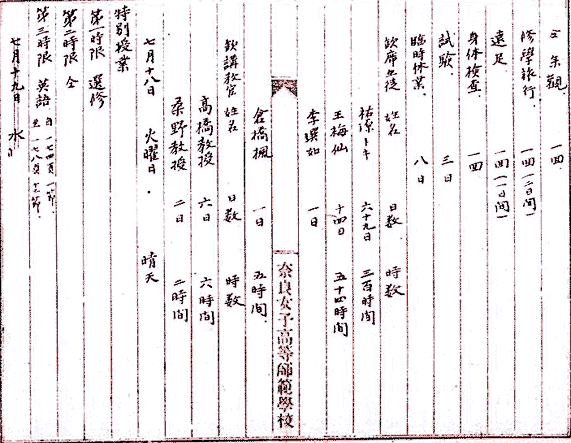 参観 一回
修學旅行 一回(二日間)
遠足 一回(一日間)
身体檢査 一回
試験 三日
臨時休業 八日
欽席生徒 姓名 日数 時数
祜添トキ 六十九日 三百時間
王梅仙 十四日 五十四時間
李璞如 一日
奈良女子高等師範學校
倉橋楓 一日 五時間
欽講教官 姓名 日数 時数
高橋教授 六日 六時間
桑野教授 二日 二時間
七月十八日 火曜日 晴天
特別授業
第一時限 選修
第二時限 仝
第三時限 英語 自一七四頁一節 至一七八頁三節
七月十九日 水